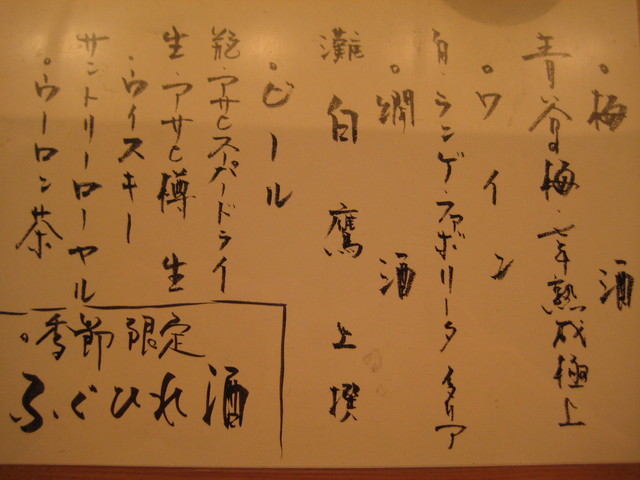 。梅酒
青谷梅・七年熟成極上
。ワイン
白・ランゲ・ファボリータ イタリア
。燗酒
灘 白鷹 上撰
。ビール
瓶・アサヒスーパードライ
生・アサヒ樽生
・ウイスキー
サントリーローヤル
。ウーロン茶
。季節限定
ふぐひれ酒